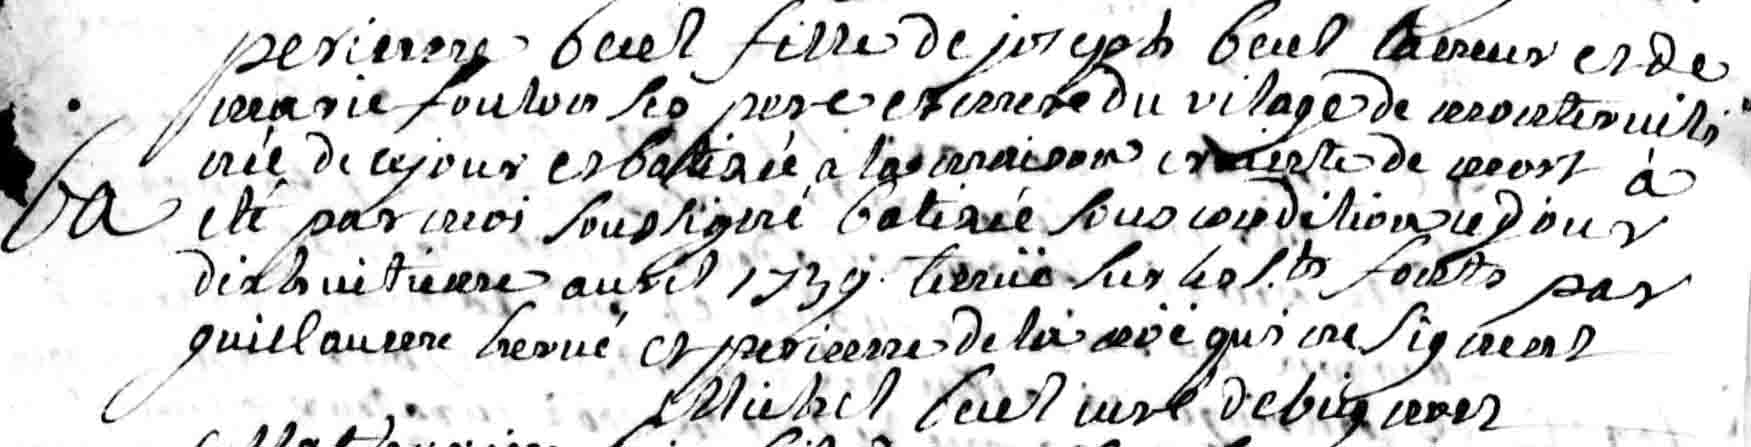 perinne bcuel fille de joseph bcuel et de
marie foulon ses pere et mere du vilage de
née de ce jour et batizée a la maison crainte de mort à
ba été par moi soussigné batizée sous condition ce jour
dixhuitieme auril 1739. tenüe sur les s.ts fonts par
guillaume herué et perinne de la noë qui ne signent
Michel bcuel curé de bignan